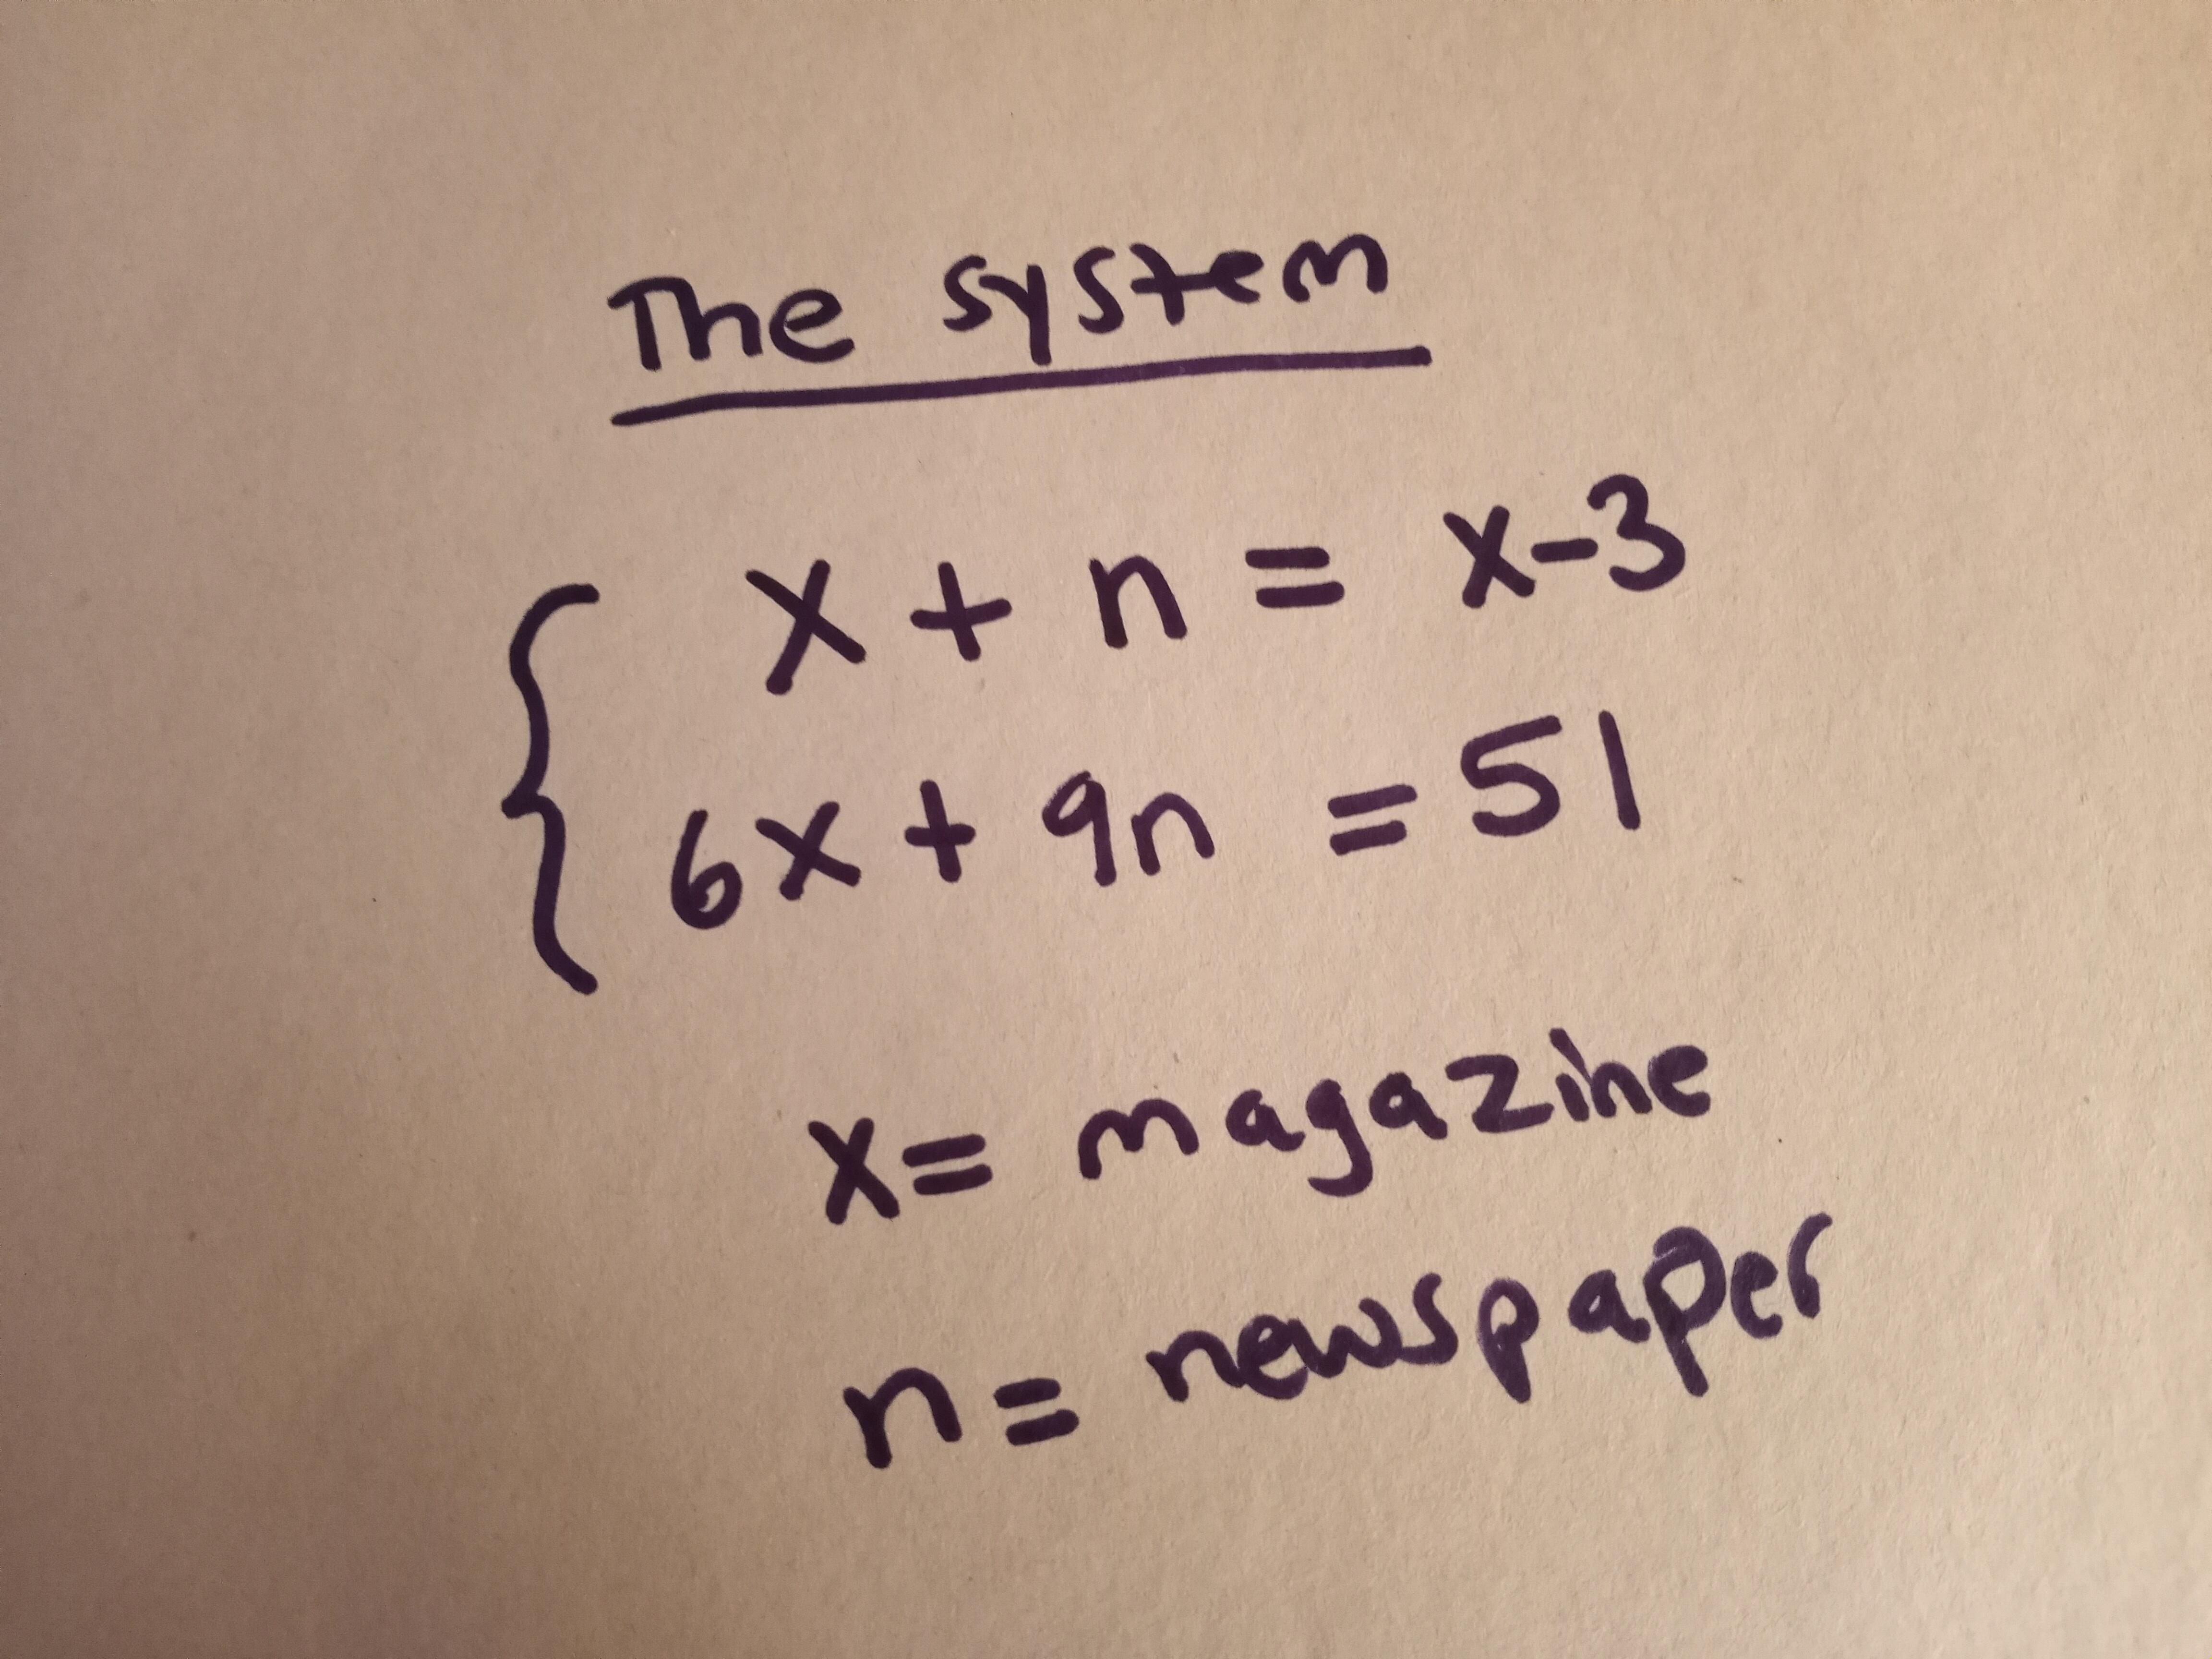 The system
x + n = x-3
6x + 9n = 51
x= magazine
n= newspaper